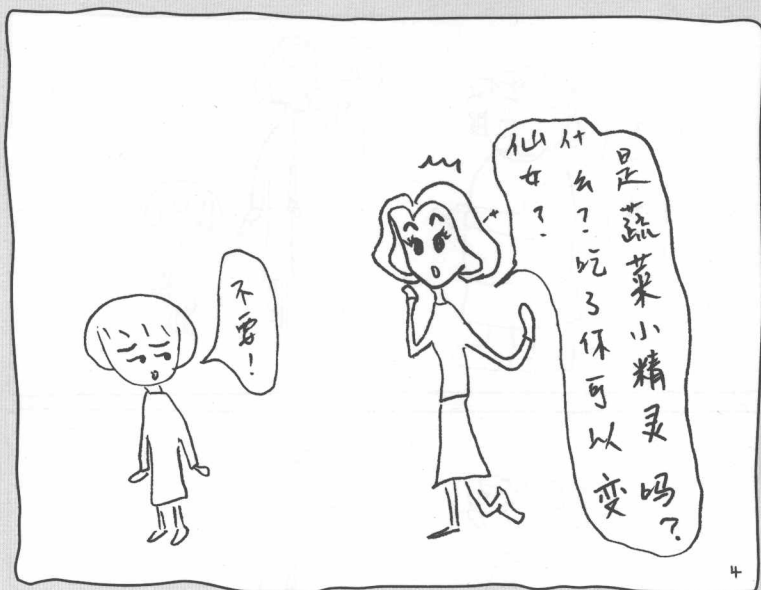 是蔬菜小精灵吗？
什么？吃了你可以变
仙女？
不要！
4